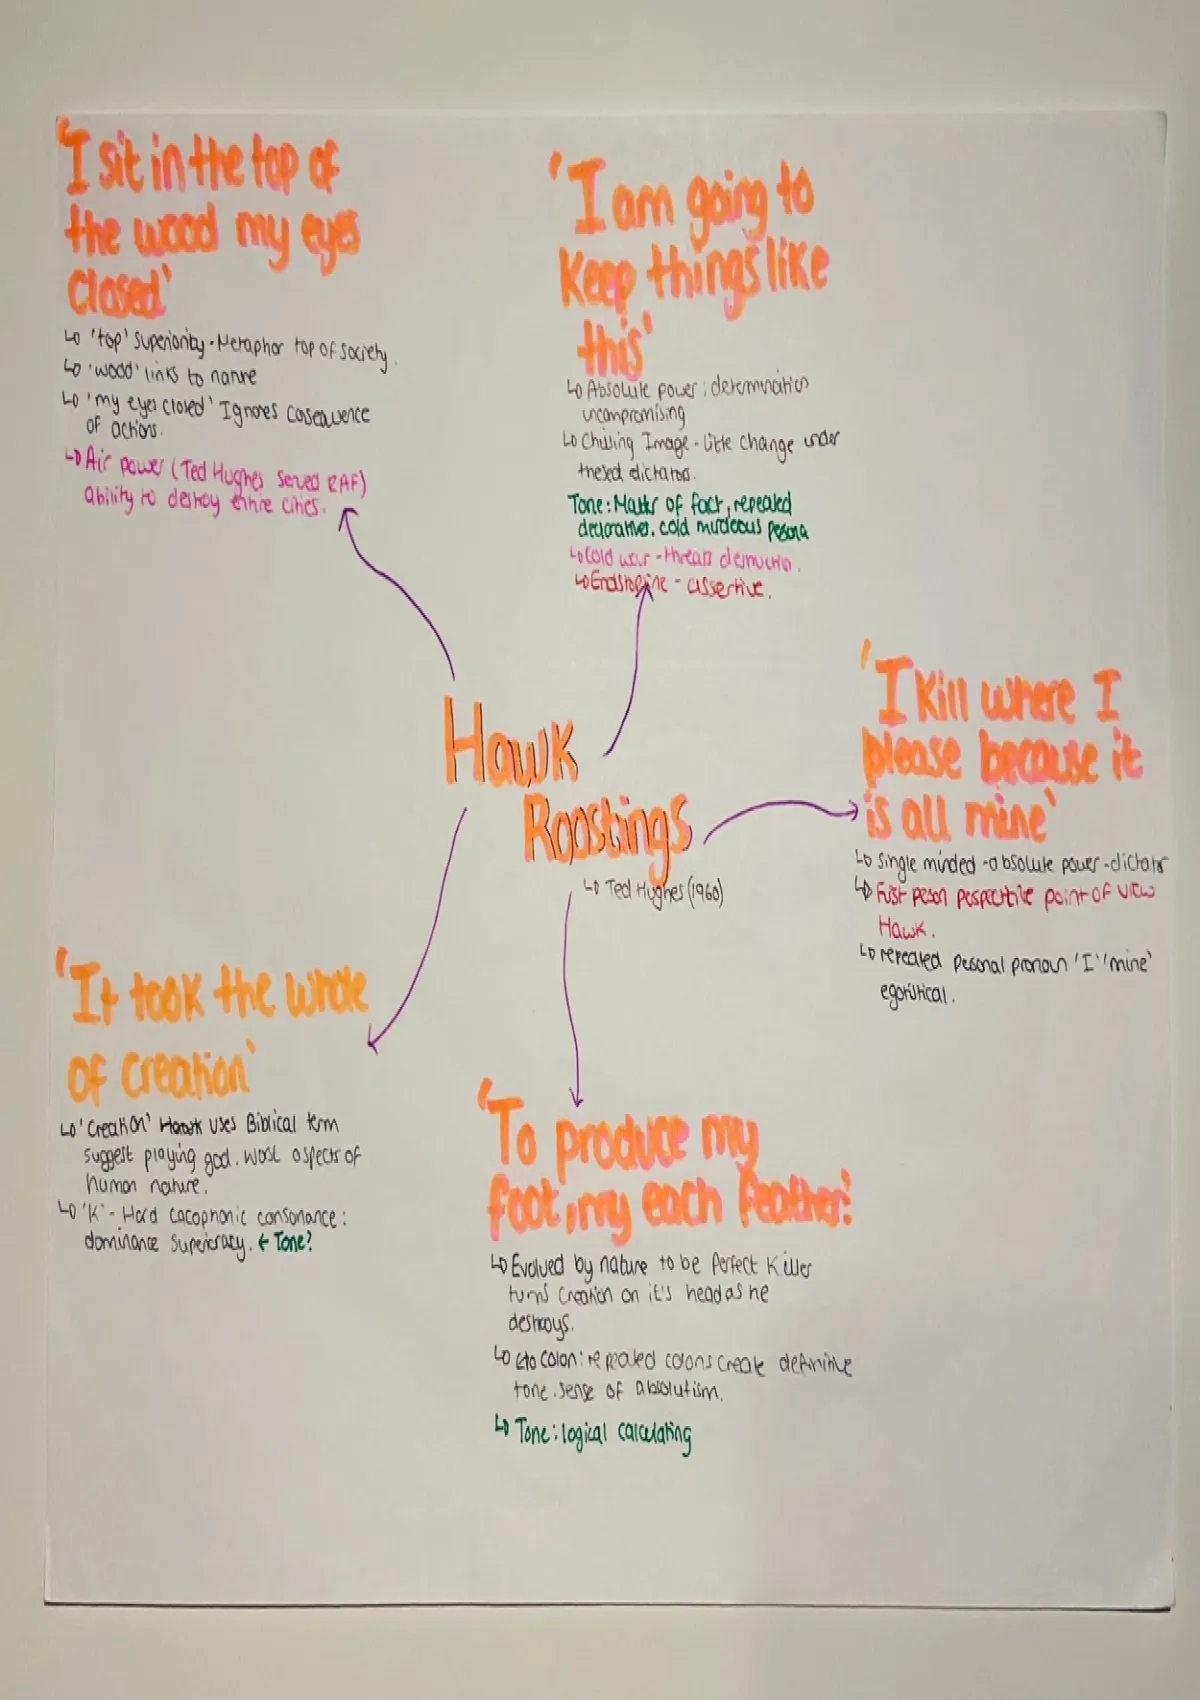 'I sit in the top of
the wood my eyes
Closed'
↳ 'top' superiority - Metaphor top of society.
↳ 'wood' links to nature
↳ 'my eyes closed' Ignores
of actions.
↳ Air power (Ted Hughes served RAF)
ability to destroy entire cities.
'I am going to
Keep things like
this'
↳ Absolute power: determination
uncompromising
↳ Chilling Image - little change under
dictators.
Tone: Matter of fact, repeated
cold murderous persona
↳ Cold war - threats destruction.
↳ Endstop line - assertive.
'I Kill where I
please because it
is all mine'
↳ Single minded - absolute power - dictator
↳ First person perspective point of view
Hawk.
↳ repeated personal pronoun 'I' 'mine'
egotistical.
Hawk
Roostings
↳ Ted Hughes (1960)
'It took the whole
of Creation'
↳ 'Creation' Hawk uses Biblical term
suggest playing god. worst aspects of
human nature.
↳ 'K' - Hard cacophonic consonance:
dominance supericracy. ← Tone?
'To produce my
foot, my each feather:'
↳ Evolved by nature to be Perfect Killer
turns Creation on it's head as he
destroys.
↳ colon: repeated colons create definitive
tone. sense of absolutism.
↳ Tone: logical calculating